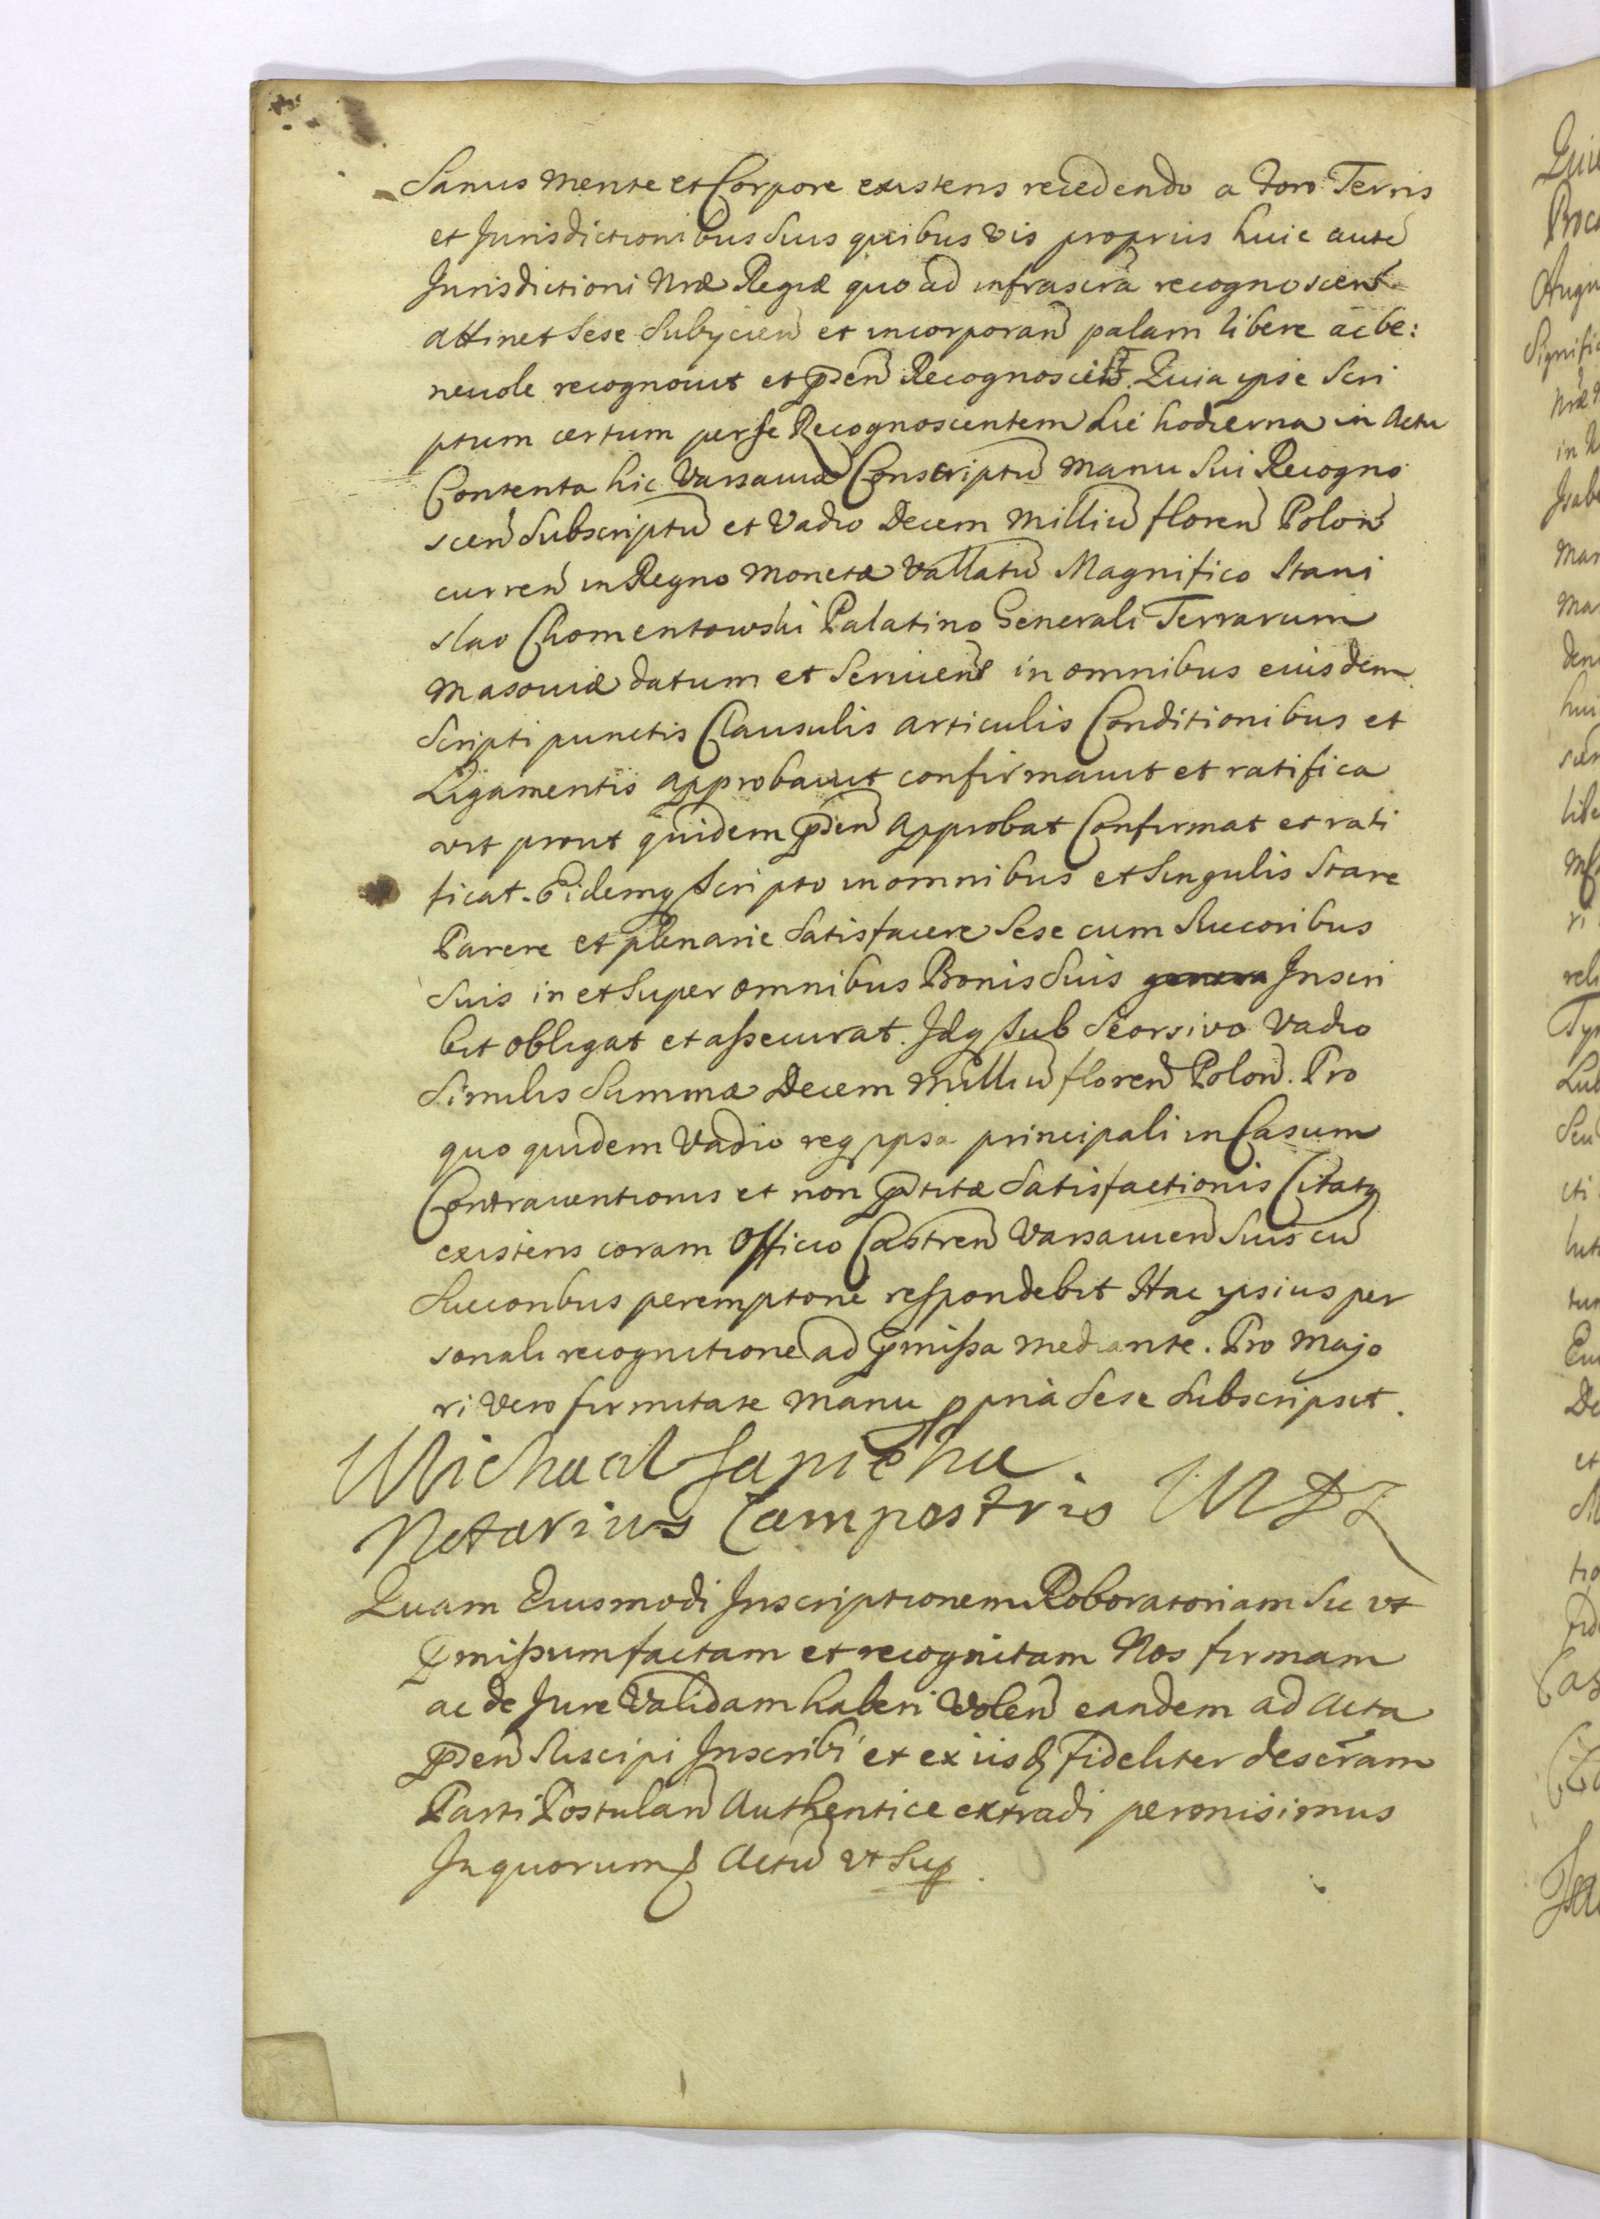 Sanus mente et Corpore existens recedendo a Foro Terris
et Jurisdictionibus Suis quibusvis proprius huic autē
Jurisdictioni Nrae Regiae quo ad infrascrā recognoscen̄
attinet Sese Subycien̄ et incorporan̄ palam libere ac be:
nevole recognovit et p̄sen̄ Recognoscit. Quia ipse Scri
ptum certum per se Recognoscentem die hodierna in Actu
Contenta hic Varsaviae Conscriptū manu Sui Recogno
scen̄ Subscriptū et Vadio Decem Milliū floren̄ Polon̄
curren̄ in Regno Monetae Vallatū Magnifico Stani
slao Chomentowski Palatino Generali Terrarum
Masoviae datum et Servien̄ in omnibus eiusdem
Scripti punctis Clausulis articulis Conditionibus et
Ligamentis approbavit confirmavit et ratifica
vit prout quidem p̄sen̄ Approbat Confirmat et rati
ficat. Eidemq Scripto in omnibus et Singulis Stare
Parere et plenarie Satisfacere Sese cum Succoribus
Suis in et Super omnibus Bonis Suis Inscri
bit Obligat et assecurat. Idq Sub Seorsivo Vadio
Similis Summae Decem Milliū floren̄ Polon̄. Pro
quo quidem Vadio req ppsa principali in Casum
Contraventionis et non p̄stitae Satisfactionis Citatq
existens coram Officio Castren̄ Varsavien̄ Suis cū
Succoribus peremptorie respondebit Hac ipsius per
sonali recognitione ad p̄missa mediante. Pro Majo
ri vero firmitate manu ppria Sese Subscripsit.
Michael Sapieha.
Notarius Campestris MDL
Quam Eiusmodi Inscriptionem Roboratoriam Sic ut
p̄missum factam et recognitam Nos firmam
ac de Jure Validam haberi Volen̄ eandem ad Acta
p̄sen̄ Suscipi Inscribi et ex iisdē fideliter descrām
Parti Postulan̄ Authentice extradi permisimus
In quorum Actū ut Sup.